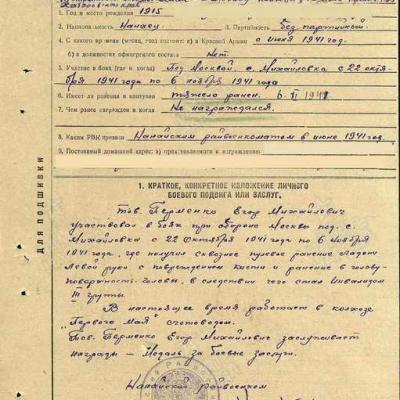 Хабаровский край
1. Год и место рождения 1915
2. Национальность Нанаец 3. Партийность беспартийный
4. С какого времени (месяц, год) состоит: а) в Красной Армии с июня 1941 год
б) в должности офицерского состава Нет
5. Участие в боях (где и когда) Под Москвой с. Михайловка с 22 октя-
бря 1941 года по 6 ноября 1941 года
6. Имеет ли ранения и контузии тяжело ранен. 6.XI 1941
7. Чем ранее награжден и когда Не награждался.
8. Каким РВК призван Нанайским райвоенкоматом в июне 1941 год.
9. Постоянный домашний адрес: а) призываемого к награждению
ДЛЯ ПОДШИВКИ
1. КРАТКОЕ, КОНКРЕТНОЕ ИЗЛОЖЕНИЕ ЛИЧНОГО
БОЕВОГО ПОДВИГА ИЛИ ЗАСЛУГ.
Тов. Перменко Егор Михайлович
участвовал в боях при обороне Москвы под с.
Михайловка с 22 Октября 1941 года по 6 Ноября
1941 года, где получил сквозное пулевое ранение Ладони
Левой руки с повреждением кисти и ранение в
поверхность головы, в следствии чего стал Инвалидом
III группы.
В настоящее время работает в колхозе
"Первого Мая" счетоводом.
Тов. Перменко Егор Михайлович заслуживает
награды – Медаль За боевые заслуги.
Нанайский райвоенком